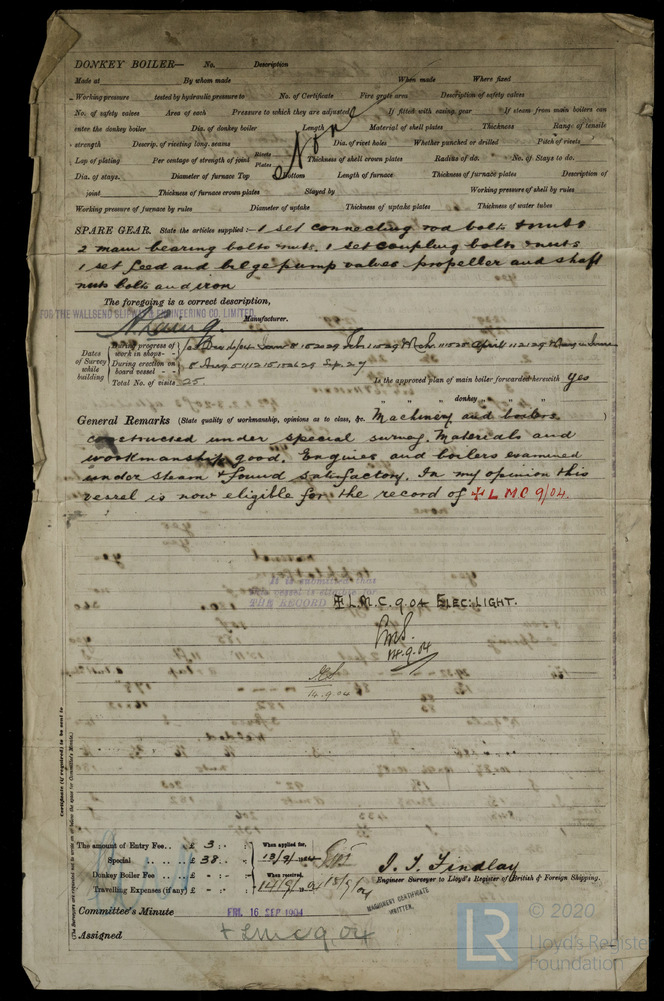 DONKEY BOILER— No. Description
Made at By whom made When made Where fixed
Working pressure tested by hydraulic pressure to No. of Certificate Fire grate area Description of safety valves
No. of safety valves Area of each Pressure to which they are adjusted If fitted with easing gear If steam from main boilers can
enter the donkey boiler Dia. of donkey boiler Length Material of shell plates Thickness Range of tensile
strength Descrip. of riveting long. seams Dia. of rivet holes Whether punched or drilled Pitch of rivets
None
Lap of plating Per centage of strength of joint Rivets Plates Thickness of shell crown plates Radius of do. No. of Stays to do.
Dia. of stays. Diameter of furnace Top Bottom Length of furnace Thickness of furnace plates Description of
joint Thickness of furnace crown plates Stayed by Working pressure of shell by rules
Working pressure of furnace by rules Diameter of uptake Thickness of uptake plates Thickness of water tubes
SPARE GEAR. State the articles supplied:— 1 set connecting rod bolts & nuts
2 main bearing bolts & nuts. 1 set coupling bolts & nuts
1 set feed and bilge pump valves propeller and shaft
nuts bolts and iron
The foregoing is a correct description,
FOR THE WALLSEND SLIPWAY & ENGINEERING CO. LIMITED.
Manufacturer.
Dates of Survey while building
During progress of work in shops--
During erection on board vessel ---
Total No. of visits 25.
Is the approved plan of main boiler forwarded herewith Yes
" " " donkey " " "
General Remarks (State quality of workmanship, opinions as to class, &c. Machinery and boilers
constructed under special survey. Materials and
workmanship good. Engines and boilers examined
under steam & found satisfactory. In my opinion this
vessel is now eligible for the record of ✠ L M C 9/04.
It is submitted that
this vessel is eligible for
THE RECORD ✠ L.M.C. 9.04 ELEC: LIGHT.
14.9.04
14.9.04
Certificate (if required) to be sent to
The amount of Entry Fee.. £ 3 : - :
When applied for,
Special .. £ 38 . - :
13/9/04
Donkey Boiler Fee .. £ - : - :
When received,
Travelling Expenses (if any) £ - : - :
14/9/04 15/9/04
J. T. Findlay
Engineer Surveyor to Lloyd's Register of British & Foreign Shipping.
Committee's Minute FRI. 16 SEP 1904
MACHINERY CERTIFICATE
WRITTEN.
Assigned + LMC 9.04
LR
© 2020
Lloyd's Register
Foundation